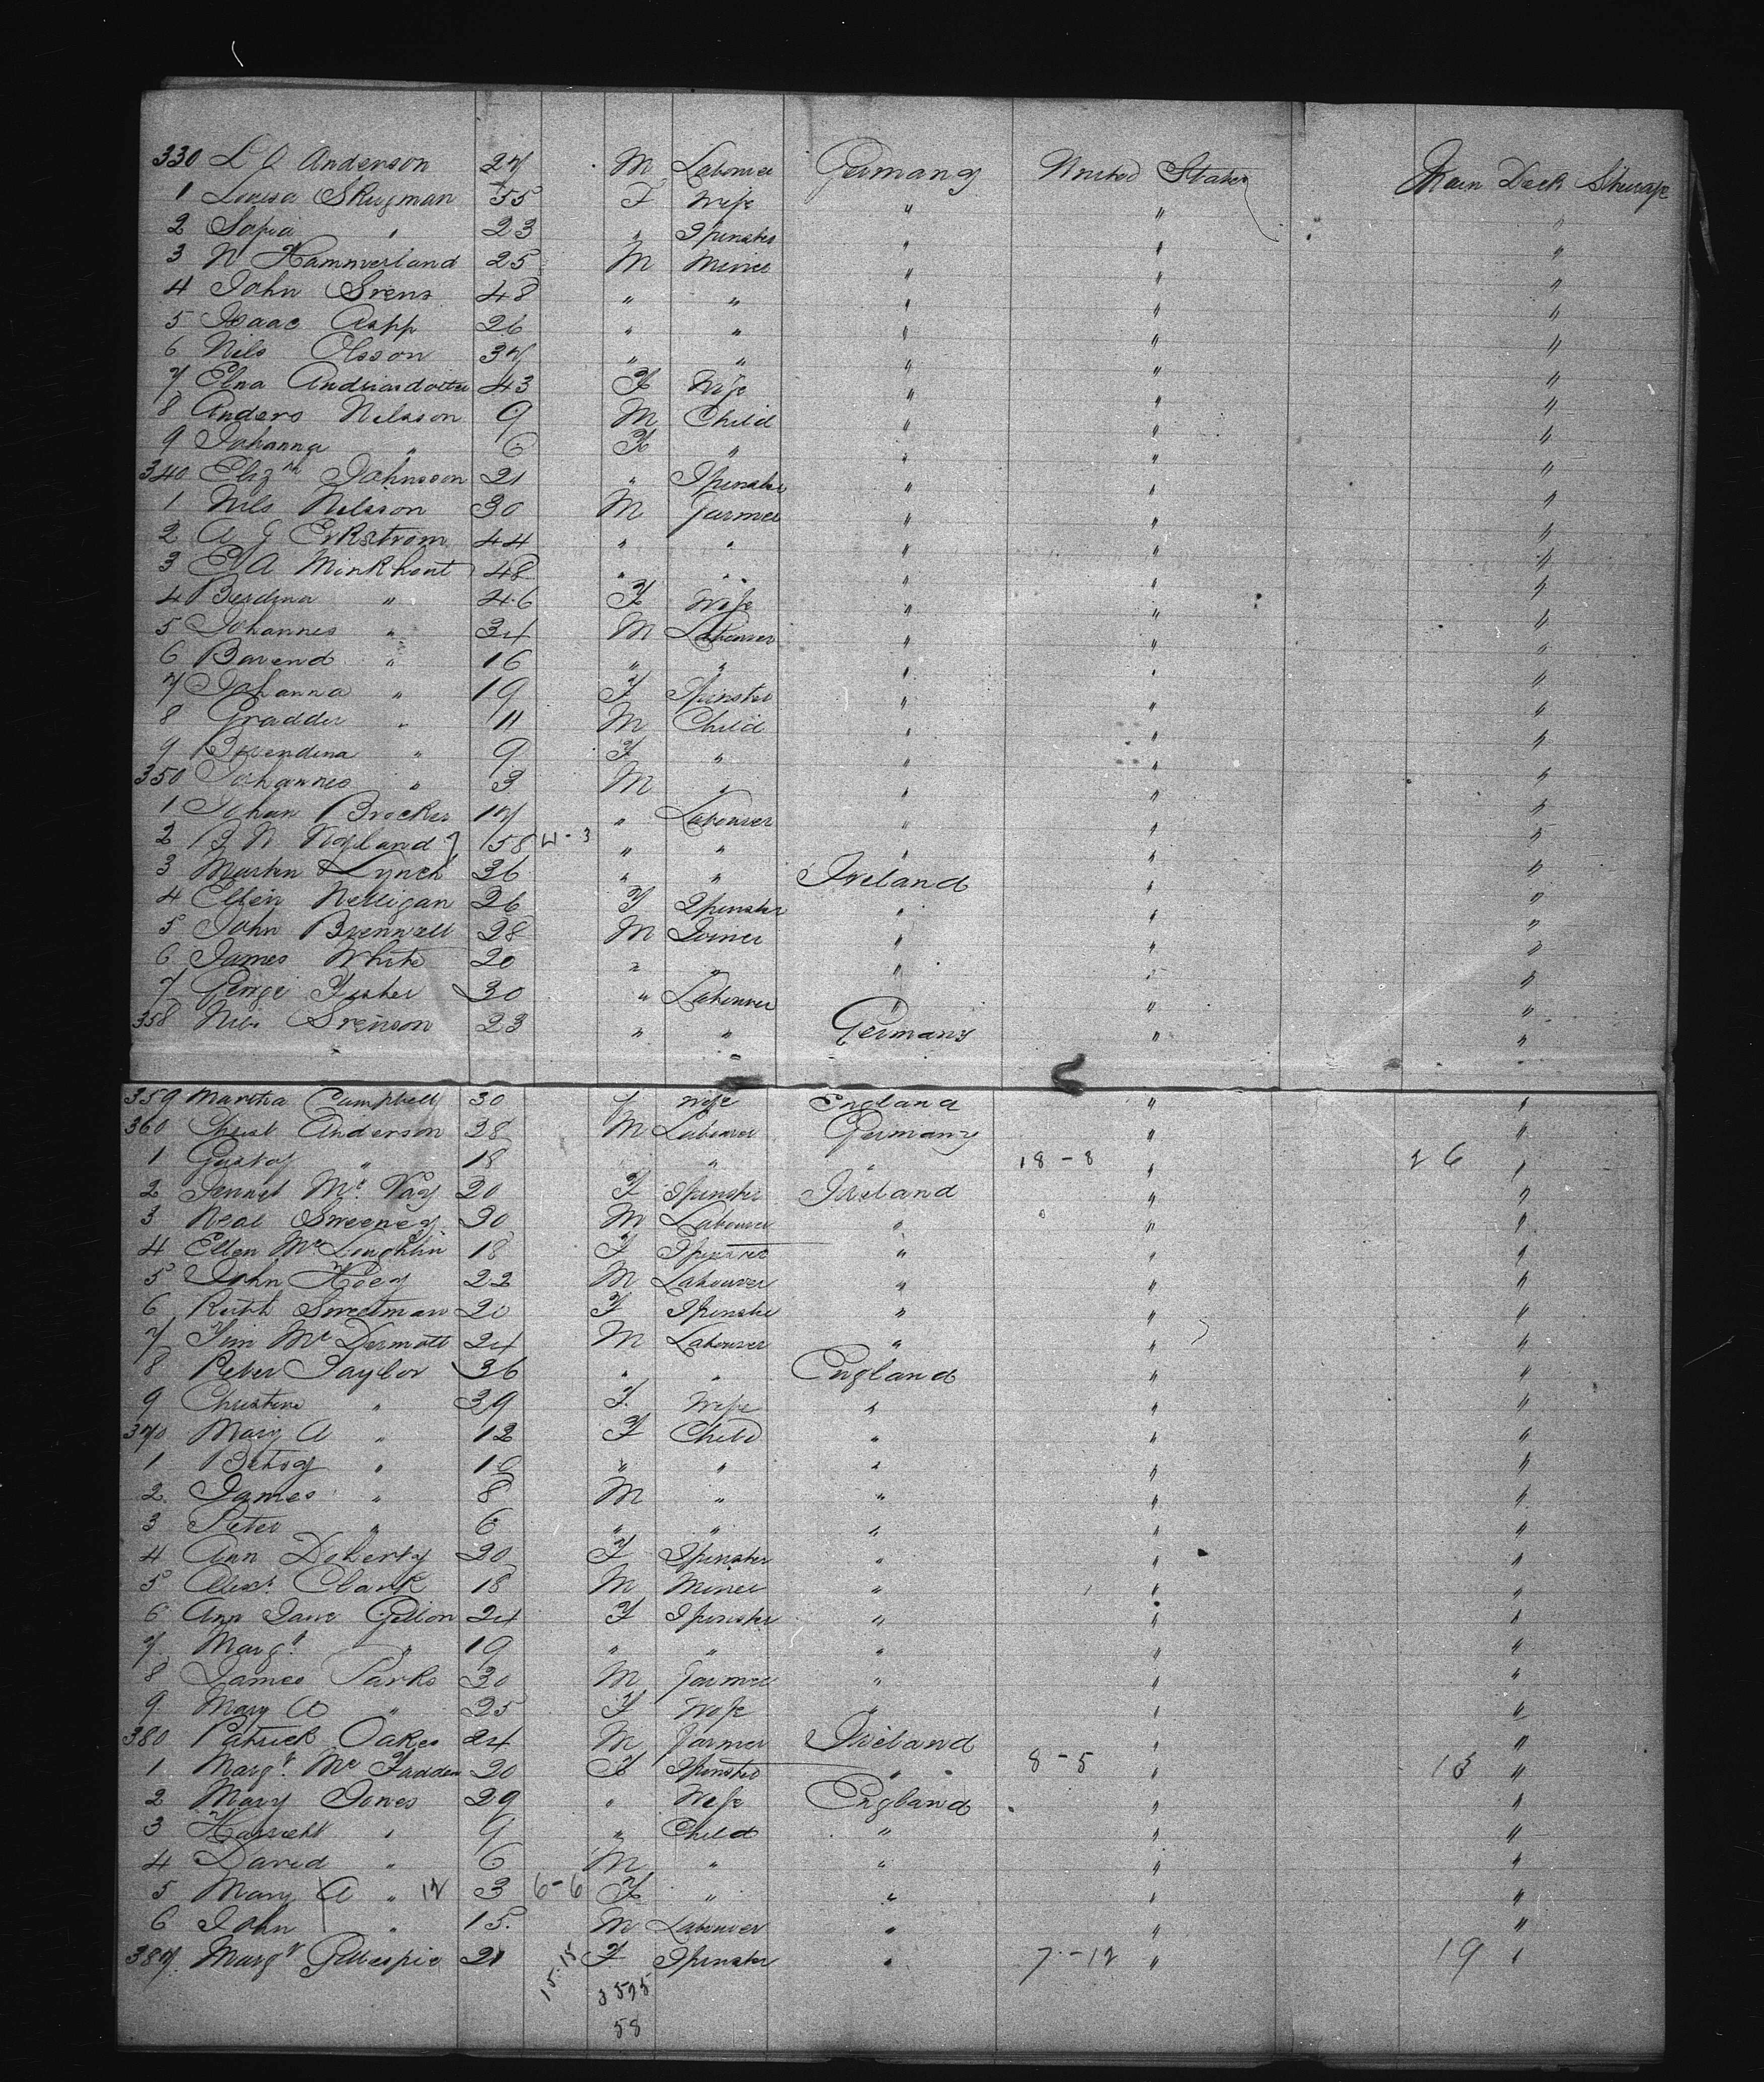 330 L O Anderson 27 M Labourer Germany United States Main Deck Steerage
1 Louisa Skugman 55 F Wife " " "
2 Sofia " 23 " Spinster " " "
3 N Hammerland 25 M Miner " " "
4 John Srens 48 " " " " "
5 Isaac Aspp 26 " " " " "
6 Nils Olsson 37 " " " " "
7 Elna 43 F Wife " " "
8 Anders Nilsson 9 M Child " " "
9 Johanna " 6 F " " " "
340 Elizth Johnson 21 " Spinster " " "
1 Nils Nilsson 30 M Farmer " " "
2 A G Erkstrom 44 " " " " "
3 E A Minkhont 48 " " " " "
4 Berdina " 46 F Wife " " "
5 Johannes " 34 M Labourer " " "
6 Barend " 16 " " " " "
7 Johanna " 19 F Spinster " " "
8 Gradder " 11 M Child " " "
9 Berendina " 9 F " " " "
350 Johannes " 3 M " " " "
1 Johan Brocker 17 " Labourer " " "
2 58 " " " " "
3 Martin Lynch 36 " " Ireland " "
4 Ellen Nelligan 26 F Spinster " " "
5 John Brennall 28 M Joiner " " "
6 James White 20 " " " " "
7 George Fisher 30 " Labourer " " "
358 Nils Srenson 23 " " Germany " "
359 Martha Campbell 30 F Wife England " "
360 Christ Anderson 28 M Labourer Germany " "
1 Gustav " 18 " " 18-8 " 26 "
2 Jennet Mc Vay 20 F Spinster Ireland " "
3 Neal Sweeney 30 M Labourer " " "
4 Ellen McLoughlin 18 F Spinster " " "
5 John Hoey 22 M Labourer " " "
6 Ruth Sweetman 20 F Spinster " " "
7 Jim McDermott 24 M Labourer " " "
8 Peter Taylor 36 " " England " "
9 Christine " 39 F. Wife " " "
370 Mary A " 12 F Child " " "
1 Betsy " 10 " " " " "
2 James " 8 M " " " "
3 Peter " 6 " " " " "
4 Ann Doherty 20 F Spinster " " "
5 Alexr. Clark 18 M Miner " " "
6 Ann Jane Gillon 24 F Spinster " " "
7 Margt. " 19 " " " " "
8 James Parks 30 M Farmer " " "
9 Mary A " 25 F Wife " " "
380 Patrick Oakes 24 M Farmer Ireland " "
1 Margt. Mc Fadden 20 F Spinster " 8-5 " 13 "
2 Mary Jones 29 " Wife England " "
3 Harriett " 9 " Child " " "
4 David " 6 M " " " "
5 Mary A " 12 3 6-6 F " " " "
6 John " 15. M Labourer " " "
387 Margt Gillespie 21 15.15 F Spinster " 7-12 " 19 "
58